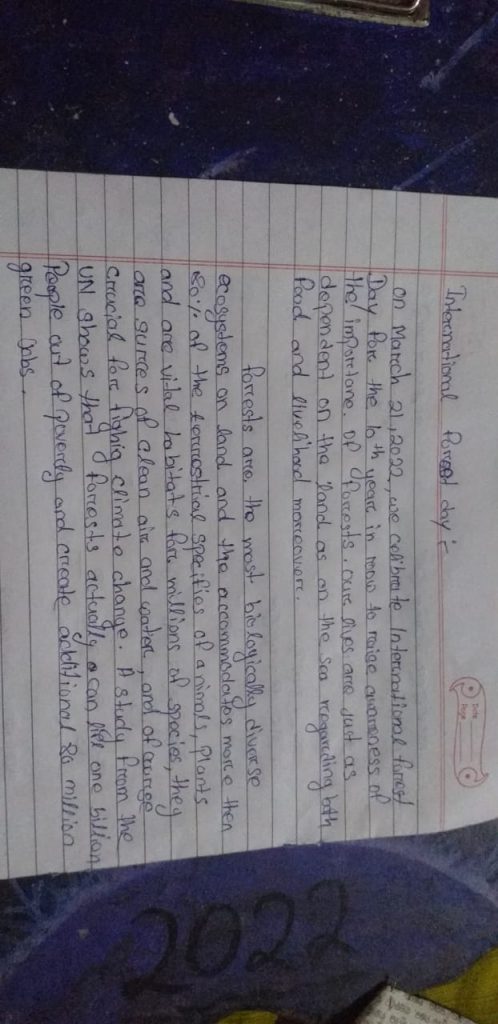 International forest day :-
Date
Page
on March 21, 2022, we celibrate International forrest
Day fore the 10th yeare in row to raige awareness of
the importane of forrests. oure lives are just as
dependent on the land as on the sea regarding both
food and livelihood moreovere.
forrests are the most biologically diverse
ecosystems on land and the accommodates more then
80% of the terrostrial specifies of animals, plants
and are vital habitats fore millions of species, they
are surces of clean air and water, and of cource
crucial fore fighig climate change. A study from the
UN shows that forrests actually can lift one billion
People out of poverly and create additional 80 million
green jobs.
2022